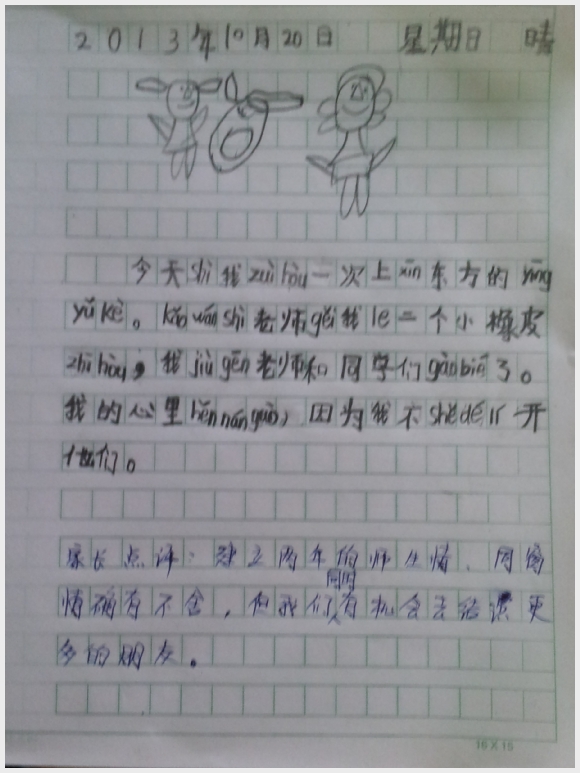 2013年10月20日 星期日 晴
今天shì我zuìhòu一次上xīn东方的yīng
yǔkè。kǎo wán shì老师gěi我le二个小橡皮
zhīhòu，我jiù gēn老师和同学们gàobié了。
我的心里hěn nánguò，因为我不shědé lí开
他们。
家长点评：建立两年的师生情、同窗
情确有不舍，但我们同时有机会去结识更
多的朋友。
16×15